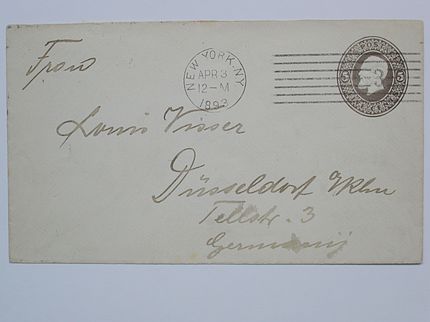 Frau
NEW YORK, N.Y.
APR 3
12-M
1893
POST
5 5
Louis Visser
Düsseldorf
Tellstr. 3
Germany